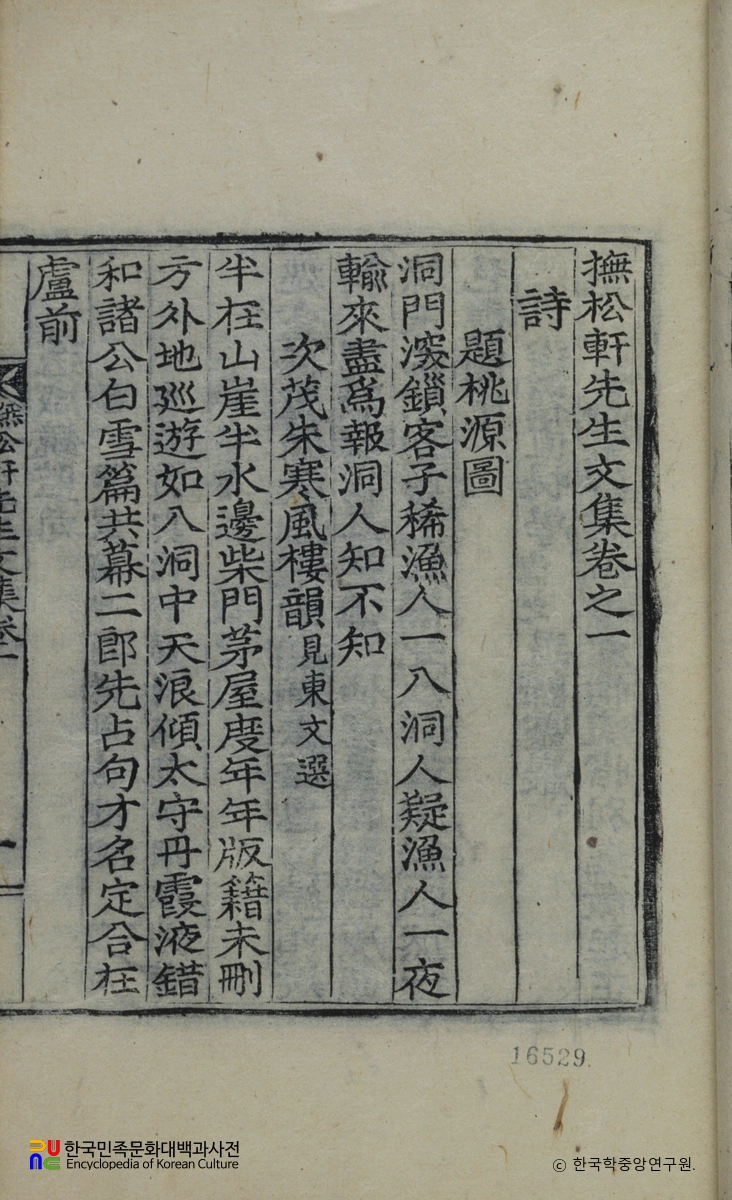 撫松軒先生文集卷之一
詩
題桃源圖
洞門深鎖客子稀漁人一入洞人疑漁人一夜
輸來盡爲報洞人知不知
次茂朱寒風樓韻見東文選
半在山崖半水邊柴門茅屋度年年版籍未刪
方外地廵遊如入洞中天浪傾太守丹霞液錯
和諸公白雪篇共幕二郎先占句才名定合在
盧前
撫松軒先生文集卷一
一
16529
한국민족문화대백과사전
Encyclopedia of Korean Culture
ⓒ 한국학중앙연구원.